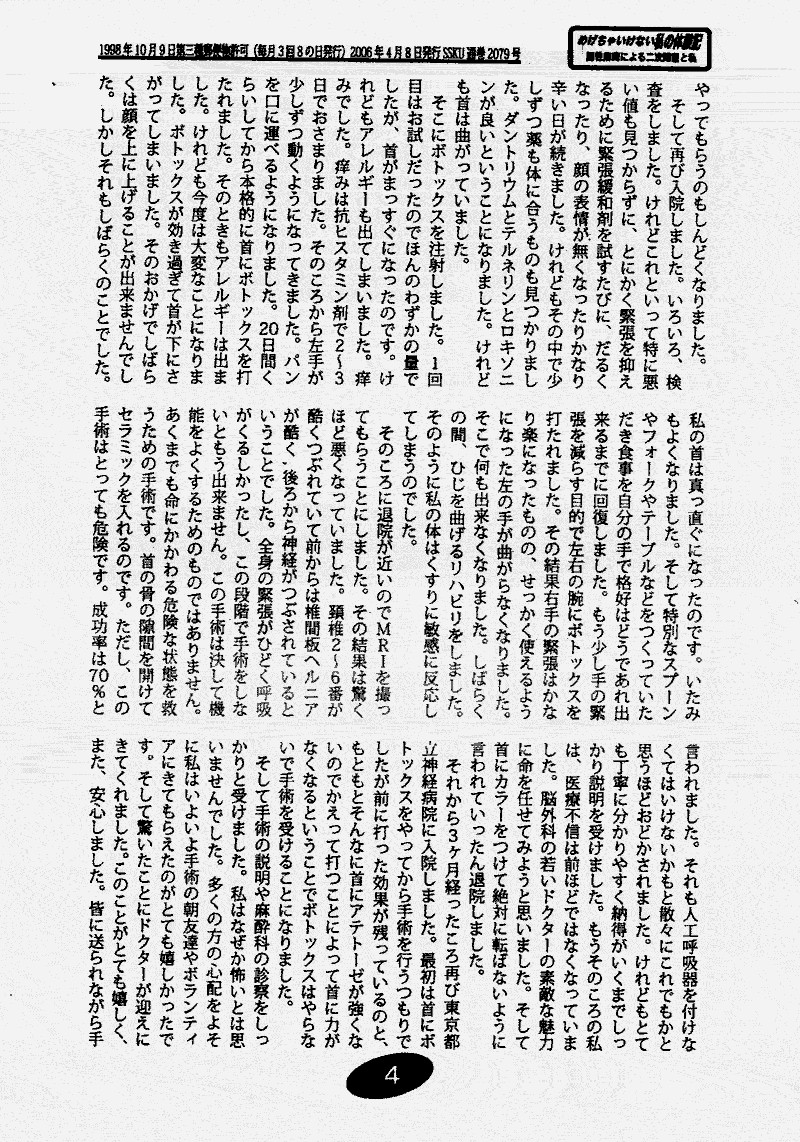 1998年10月9日第三種郵便物許可（毎月3回8の日発行）2006年4月8日発行 SSKU 通巻2079号
めげちゃいけない私の体験記
脳性麻痺による二次障害と私
やってもらうのもしんどくなりました。
そして再び入院しました。いろいろ、検
査をしました。けれどこれといって特に悪
い値も見つからずに、とにかく緊張を抑え
るために緊張緩和剤を試すたびに、だるく
なったり、顔の表情が無くなったりかなり
辛い日が続きました。けれどもその中で少
しずつ薬も体に合うものも見つかりまし
た。ダントリウムとテルネリンとロキソニ
ンが良いということになりました。けれど
も首は曲がっていました。
そこにボトックスを注射しました。1回
目はお試しだったのでほんのわずかの量で
したが、首がまっすぐになったのです。け
れどもアレルギーも出てしまいました。痒
みでした。痒みは抗ヒスタミン剤で2～3
日でおさまりました。そのころから左手が
少しずつ動くようになってきました。パン
を口に運べるようになりました。20日間く
らいしてから本格的に首にボトックスを打
たれました。そのときもアレルギーは出ま
した。けれども今度は大変なことになりま
した。ボトックスが効き過ぎて首が下にさ
がってしまいました。そのおかげでしばら
くは顔を上に上げることが出来ませんでし
た。しかしそれもしばらくのことでした。
私の首は真っ直ぐになったのです。いたみ
もよくなりました。そして特別なスプーン
やフォークやテーブルなどをつくっていた
だき食事を自分の手で格好はどうであれ出
来るまでに回復しました。もう少し手の緊
張を減らす目的で左右の腕にボトックスを
打たれました。その結果右手の緊張はかな
り楽になったものの、せっかく使えるよう
になった左の手が曲がらなくなりました。
そこで何も出来なくなりました。しばらく
の間、ひじを曲げるリハビリをしました。
そのように私の体はくすりに敏感に反応し
てしまうのでした。
そのころに退院が近いのでMRIを撮っ
てもらうことにしました。その結果は驚く
ほど悪くなっていました。頚椎2～6番が
酷くつぶれていて前からは椎間板ヘルニア
が酷く、後ろから神経がつぶされていると
いうことでした。全身の緊張がひどく呼吸
がくるしかったし、この段階で手術をしな
いともう出来ません。この手術は決して機
能をよくするためのものではありません。
あくまでも命にかかわる危険な状態を救
うための手術です。首の骨の隙間を開けて
セラミックを入れるのです。ただし、この
手術はとっても危険です。成功率は70％と
言われました。それも人工呼吸器を付けな
くてはいけないかもと散々にこれでもかと
思うほどおどかされました。けれどもとて
も丁寧に分かりやすく納得がいくまでしっ
かり説明を受けました。もうそのころの私
は、医療不信は前ほどではなくなっていま
した。脳外科の若いドクターの素敵な魅力
に命を任せてみようと思いました。そして
首にカラーをつけて絶対に転ばないように
言われていったん退院しました。
それから3ヶ月経ったころ再び東京都
立神経病院に入院しました。最初は首にボ
トックスをやってから手術を行うつもりで
したが前に打った効果が残っているのと、
もともとそんなに首にアテトーゼが強くな
いのでかえって打つことによって首に力が
なくなるということでボトックスはやらな
いで手術を受けることになりました。
そして手術の説明や麻酔科の診察をしっ
かりと受けました。私はなぜか怖いとは思
いませんでした。多くの方の心配をよそ
に私はいよいよ手術の朝友達やボランティ
アにきてもらえたのがとても嬉しかったで
す。そして驚いたことにドクターが迎えに
きてくれました。このことがとても嬉しく、
また、安心しました。皆に送られながら手
4